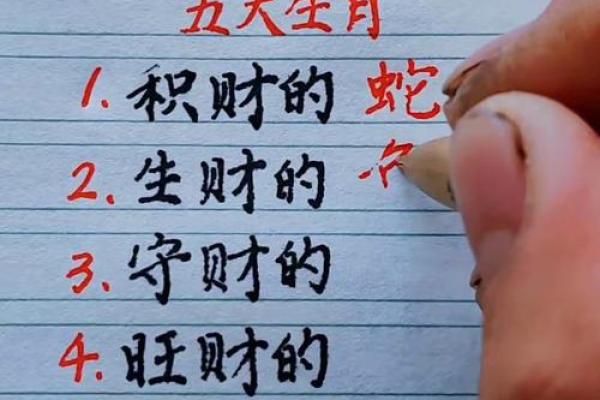 五大生肖
1. 积财的 蛇
2. 生财的
3. 守财的
4. 旺财的